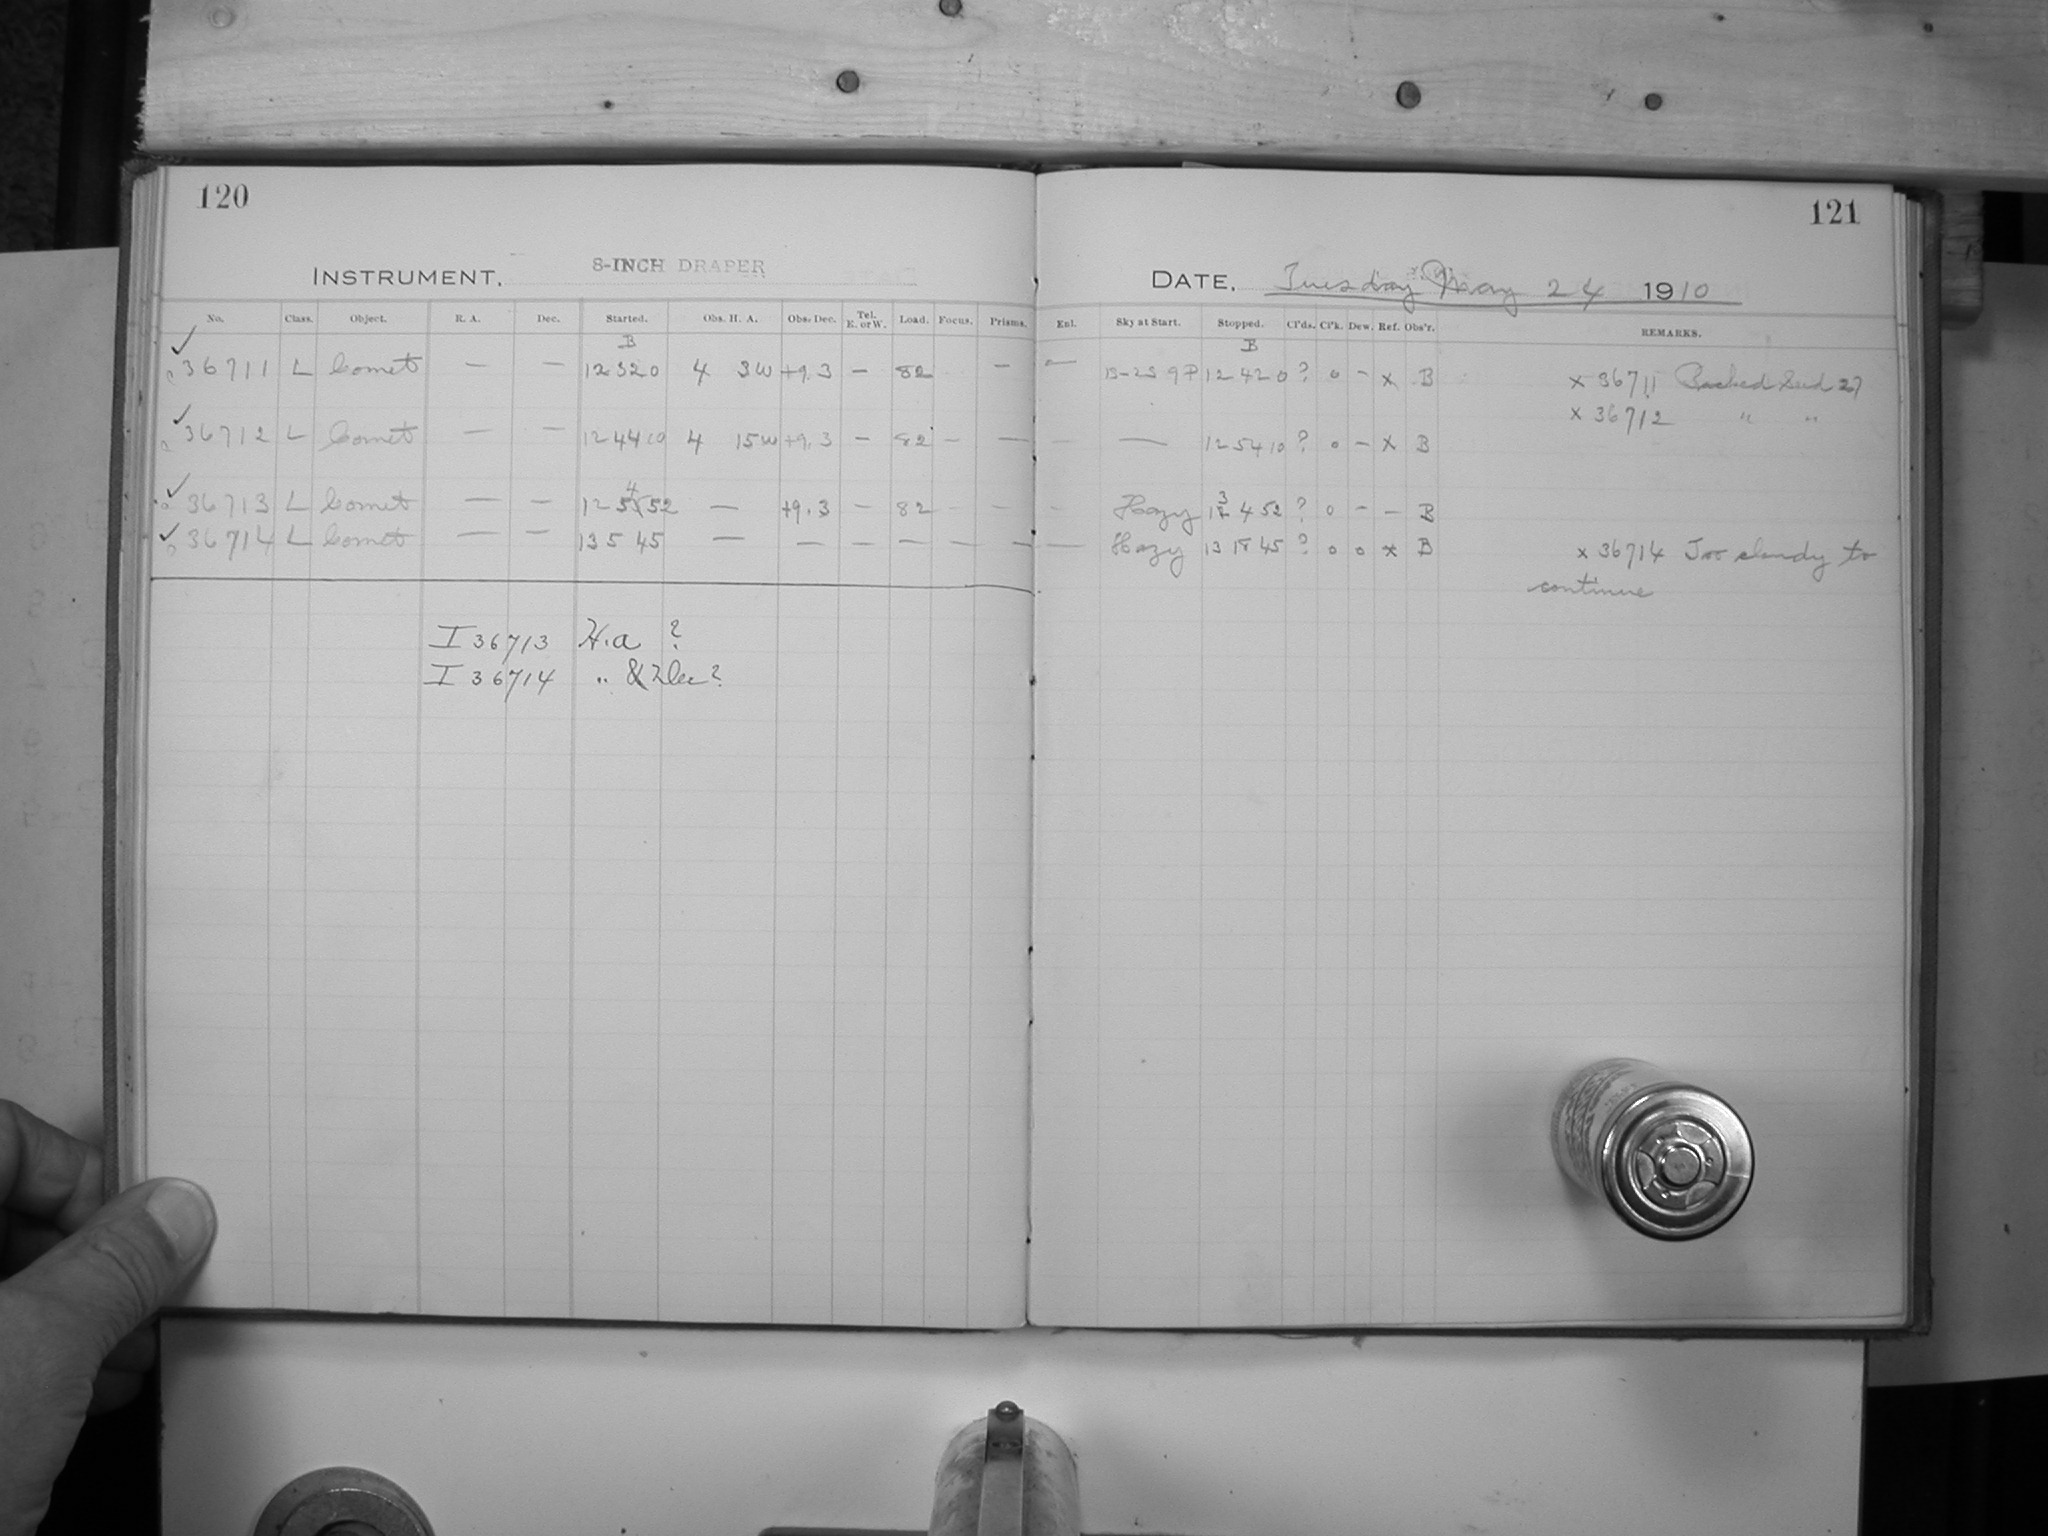 120
121
INSTRUMENT. 8-INCH DRAPER
DATE. Tuesday May 24 1910
No. Class. Object. R. A. Dec. Started. Obs. H. A. Obs. Dec. Tel. E. or W. Load. Focus. Prisms. Enl. Sky at Start. Stopped. Cl'ds. Cl'k. Dew. Ref. Obs'r. REMARKS.
B B
36711 L Comet — — 12 32 0 4 3W +9.3 — 82 — — 12 42 0 ? 0 – x B x 36711
36712 L Comet — — 12 44 10 4 15W +9.3 — 82 – — — — 12 54 10 ? 0 – x B x 36712 " "
36713 L Comet — — 12 54 52 — +9.3 — 82 – – – Hazy 13 4 52 ? 0 – – B
36714 L Comet — — 13 5 45 — — — — — — — Hazy 13 15 45 ? 0 0 x B x 36714 Too cloudy to
continue
I 36713 H.a ?
I 36714 " & Dec?